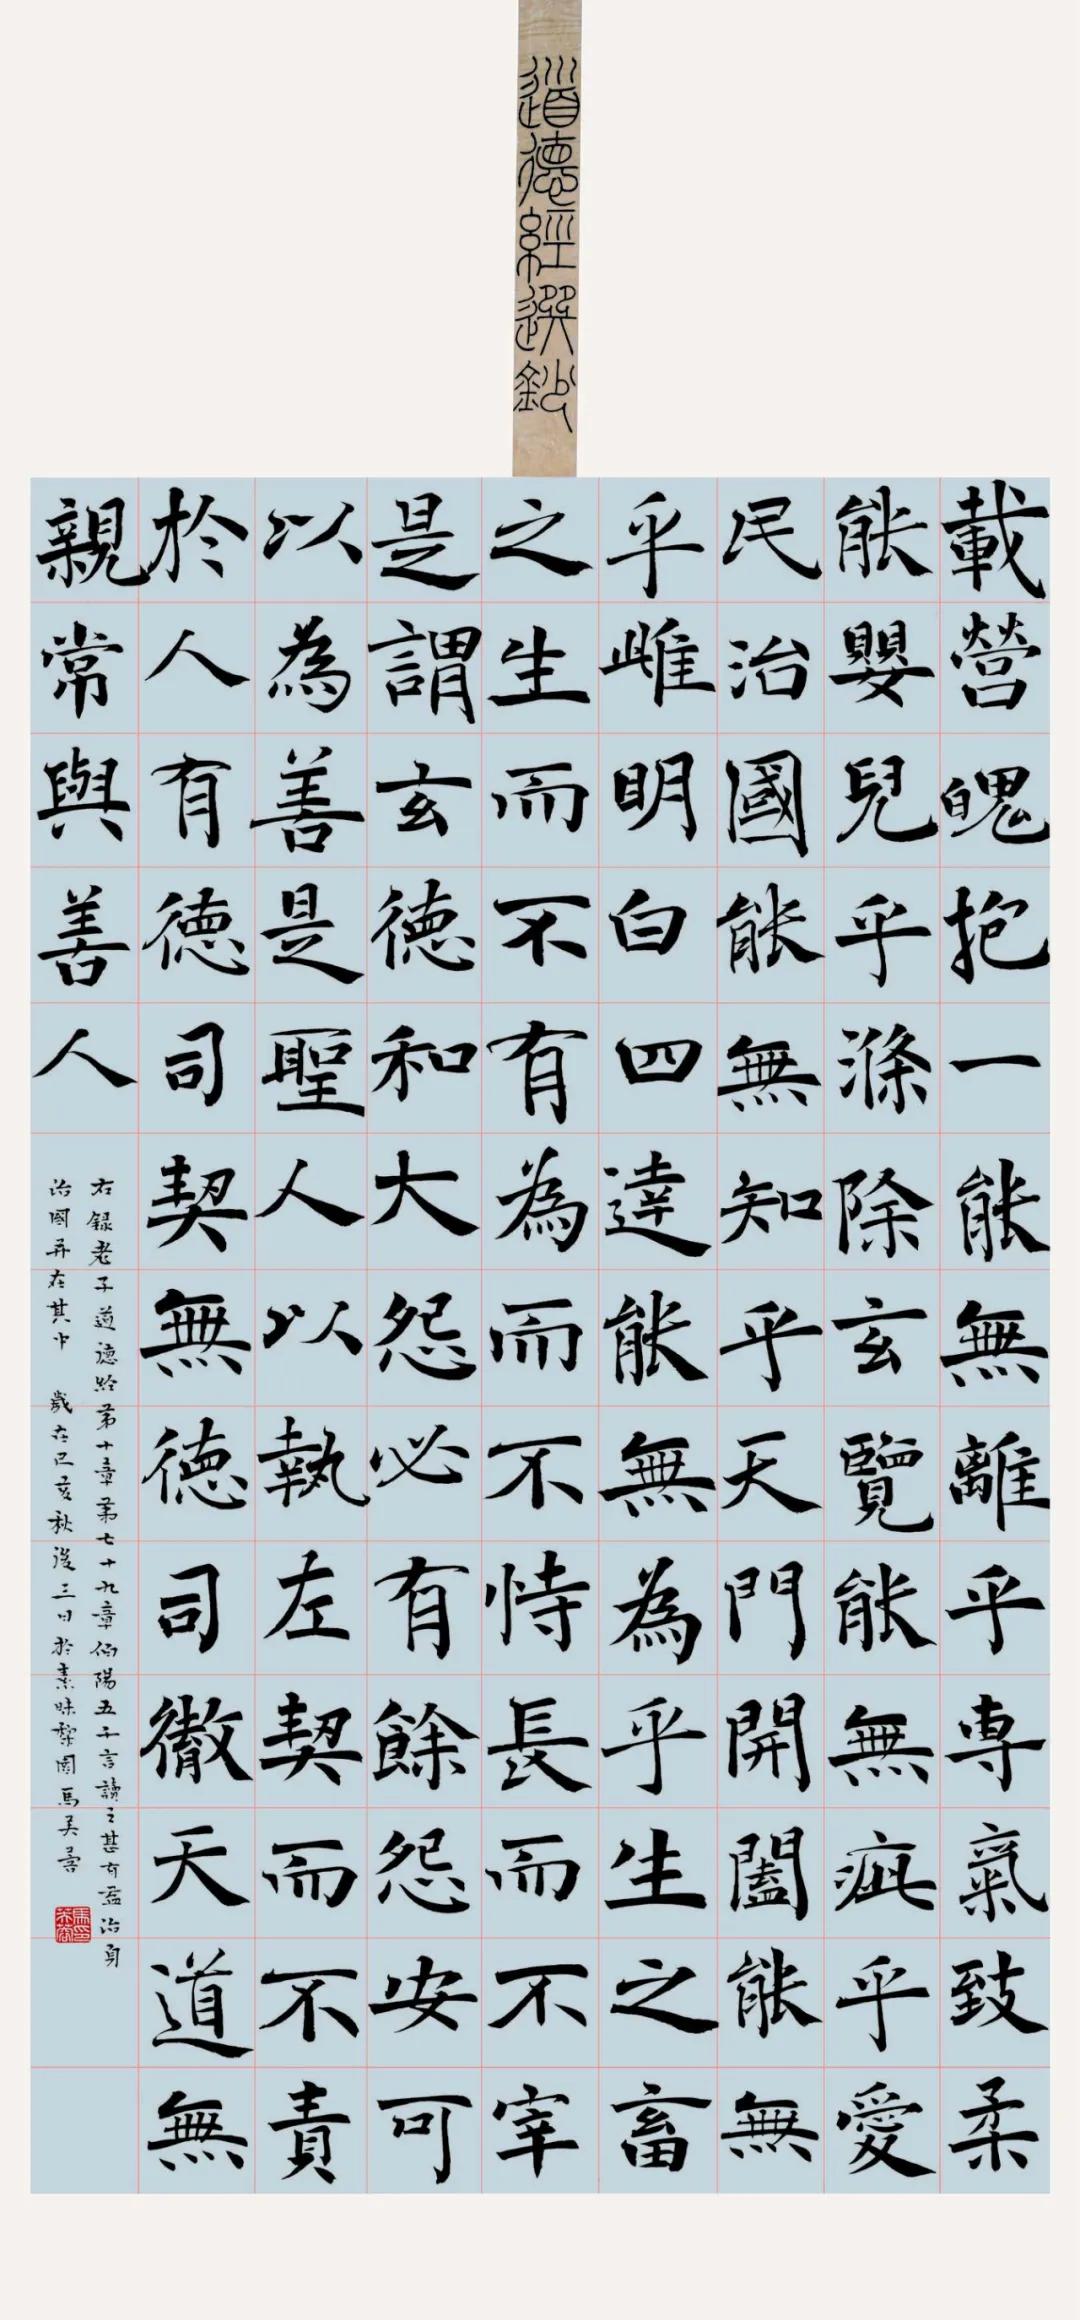 道德經選鈔
載營魄抱一能無離乎專氣致柔
能嬰兒乎滌除玄覽能無疵乎愛
民治國能無知乎天門開闔能無
乎雌明白四達能無為乎生之畜
之生而不有為而不恃長而不宰
是謂玄德和大怨必有餘怨安可
以為善是聖人以執左契而不責
於人有德司契無德司徹天道無
親常與善人
右錄老子道德經第十章第七十九章伯陽五千言讀之甚有益治身
治國并在其中 歲在己亥秋後三日於素昧園馬